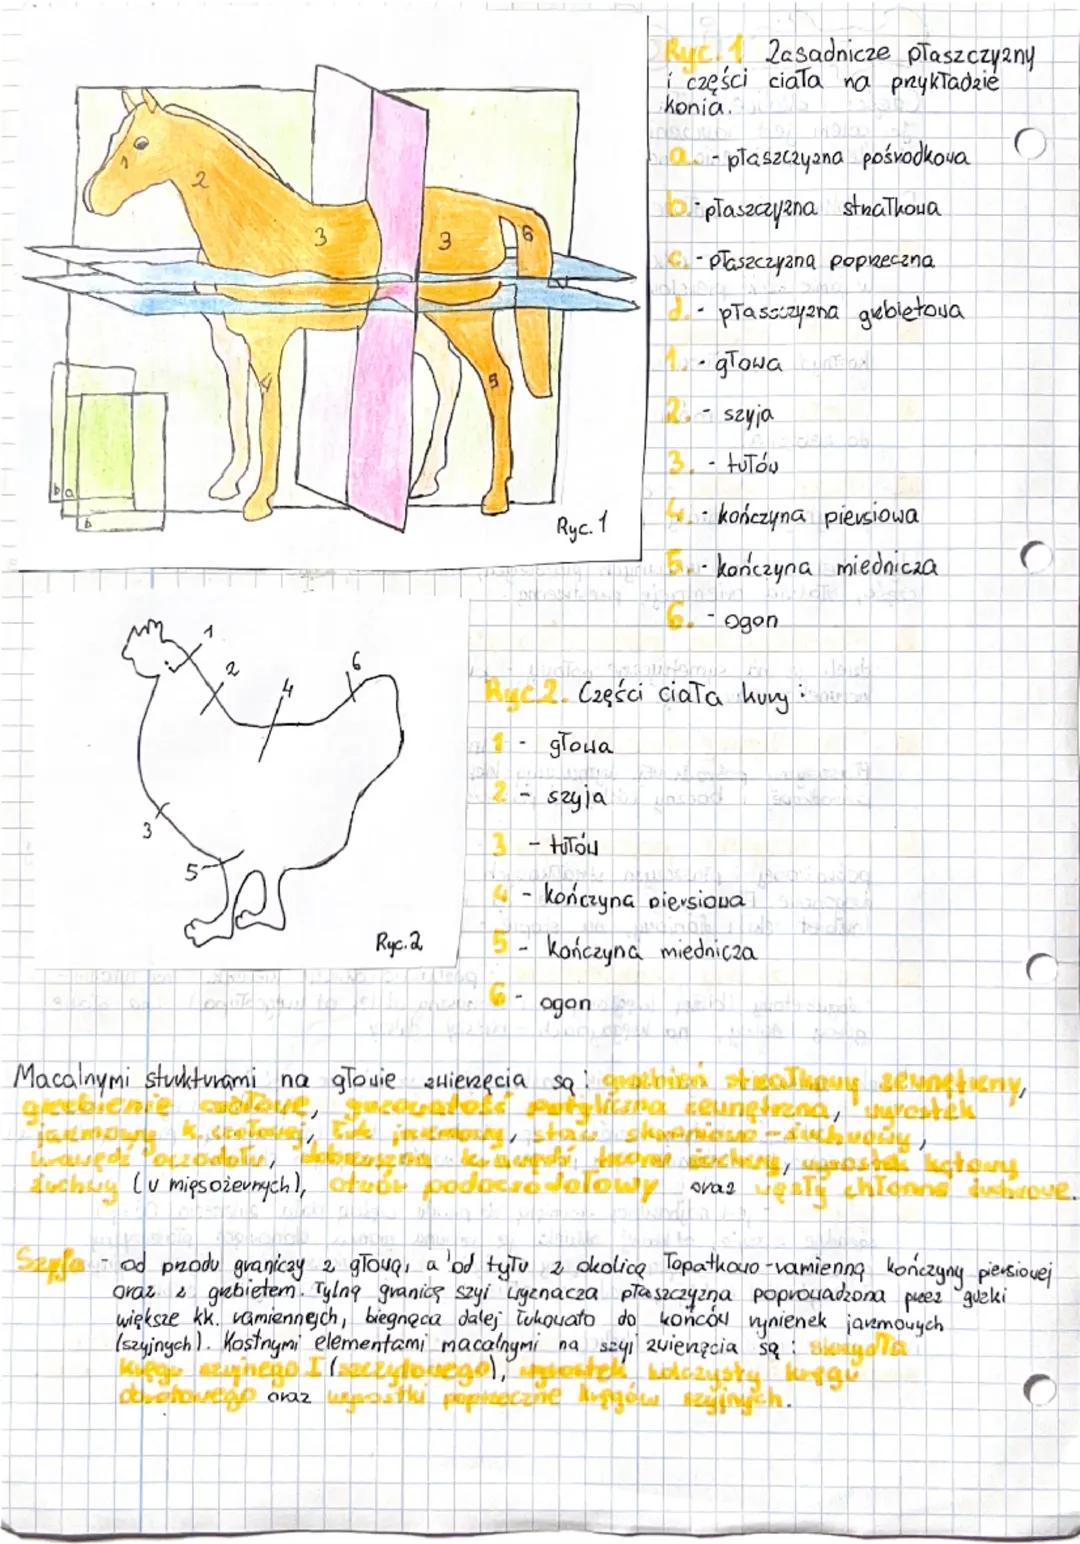 Ryc. 1 Zasadnicze płaszczyzny
i części ciała na przykładzie
konia.
a. - płaszczyzna pośrodkowa
b. - płaszczyzna strzałkowa
c. - płaszczyzna poprzeczna
d. - płaszczyzna grzbietowa
1. - głowa
2. - szyja
3. - tułów
4. - kończyna piersiowa
5. - kończyna miednicza
6. - ogon
1
2
3
3
6
4
5
b
a
b
Ryc. 1
1
2
4
6
3
5
Ryc. 2
Ryc 2. Części ciała kury :
1 - głowa
2 - szyja
3 - tułów
4 - kończyna piersiowa
5 - kończyna miednicza
6 - ogon
Macalnymi strukturami na głowie zwierzęcia są : grzebień strzałkowy zewnętrzny,
grzebienie czołowe, guzowatość potyliczna zewnętrzna, wyrostek
jarzmowy k. czołowej, łuk jarzmowy, staw skroniowo-żuchwowy,
krawędź oczodołu, krawędź żuchwy, wyrostek kątowy
żuchwy (u mięsożernych), otwór podoczodołowy oraz węzły chłonne żuchwowe.
Szyja - od przodu graniczy z głową, a od tyłu z okolicą łopatkowo-ramienną kończyny piersiowej
oraz z grzbietem. Tylną granicę szyi wyznacza płaszczyzna poprowadzona przez guzki
większe kk. ramiennych, biegnąca dalej łukowato do końców rynienek jarzmowych
(szyjnych). Kostnymi elementami macalnymi na szyi zwierzęcia są : skrzydła
kręgu szyjnego I (szczytowego), wyrostek kolczysty kręgu
obrotowego oraz wyrostki poprzeczne kręgów szyjnych.